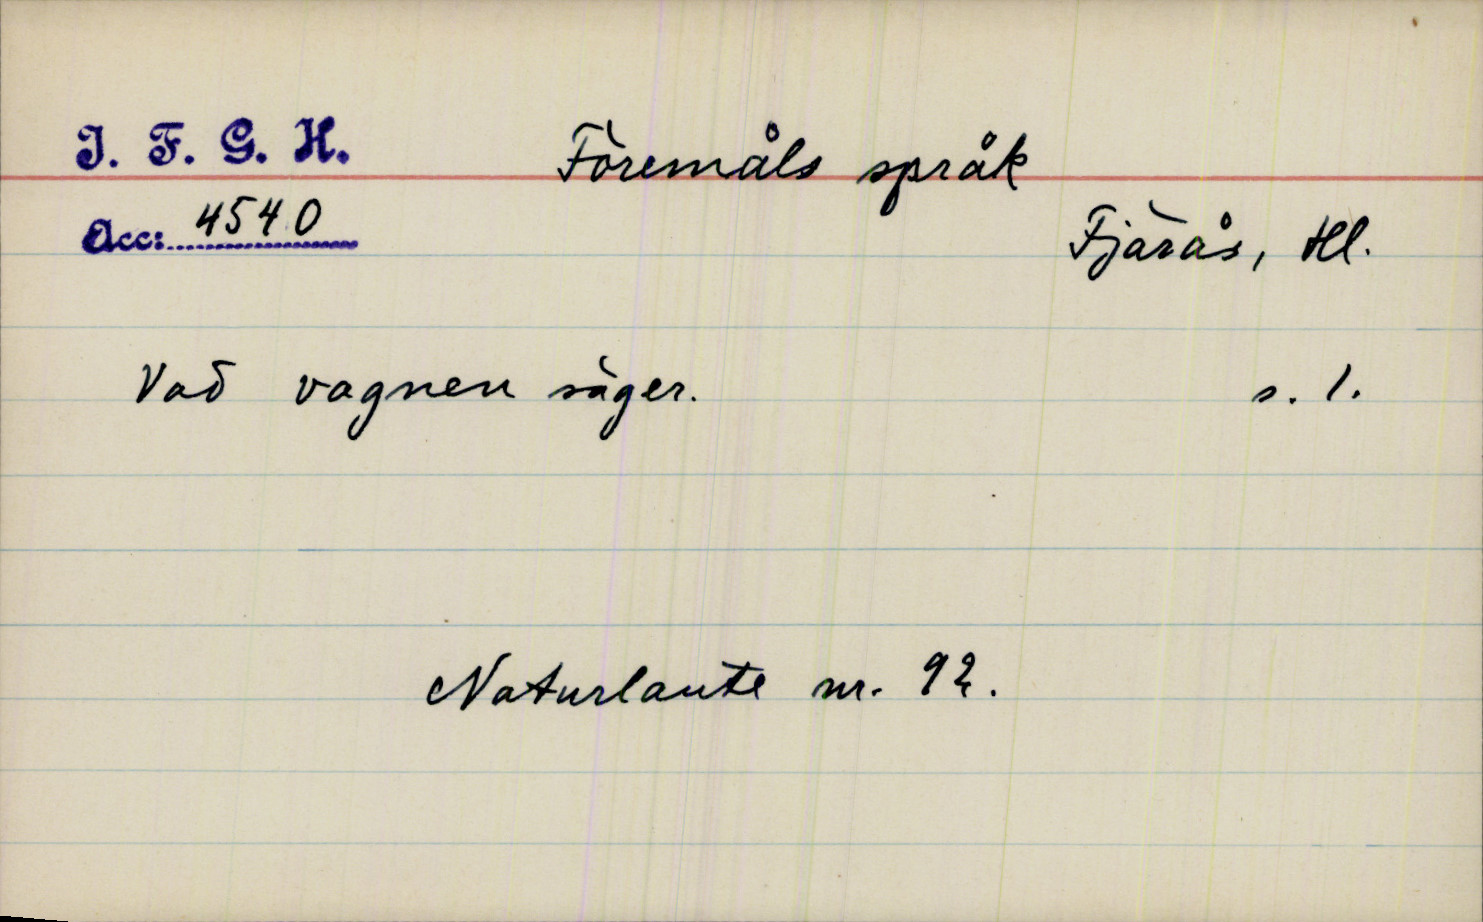 I. F. G. H.
Föremåls språk
Acc: 4540
Fjärås, Hl.
Vad vagnen säger. s. 1.
Naturlaute nr. 92.